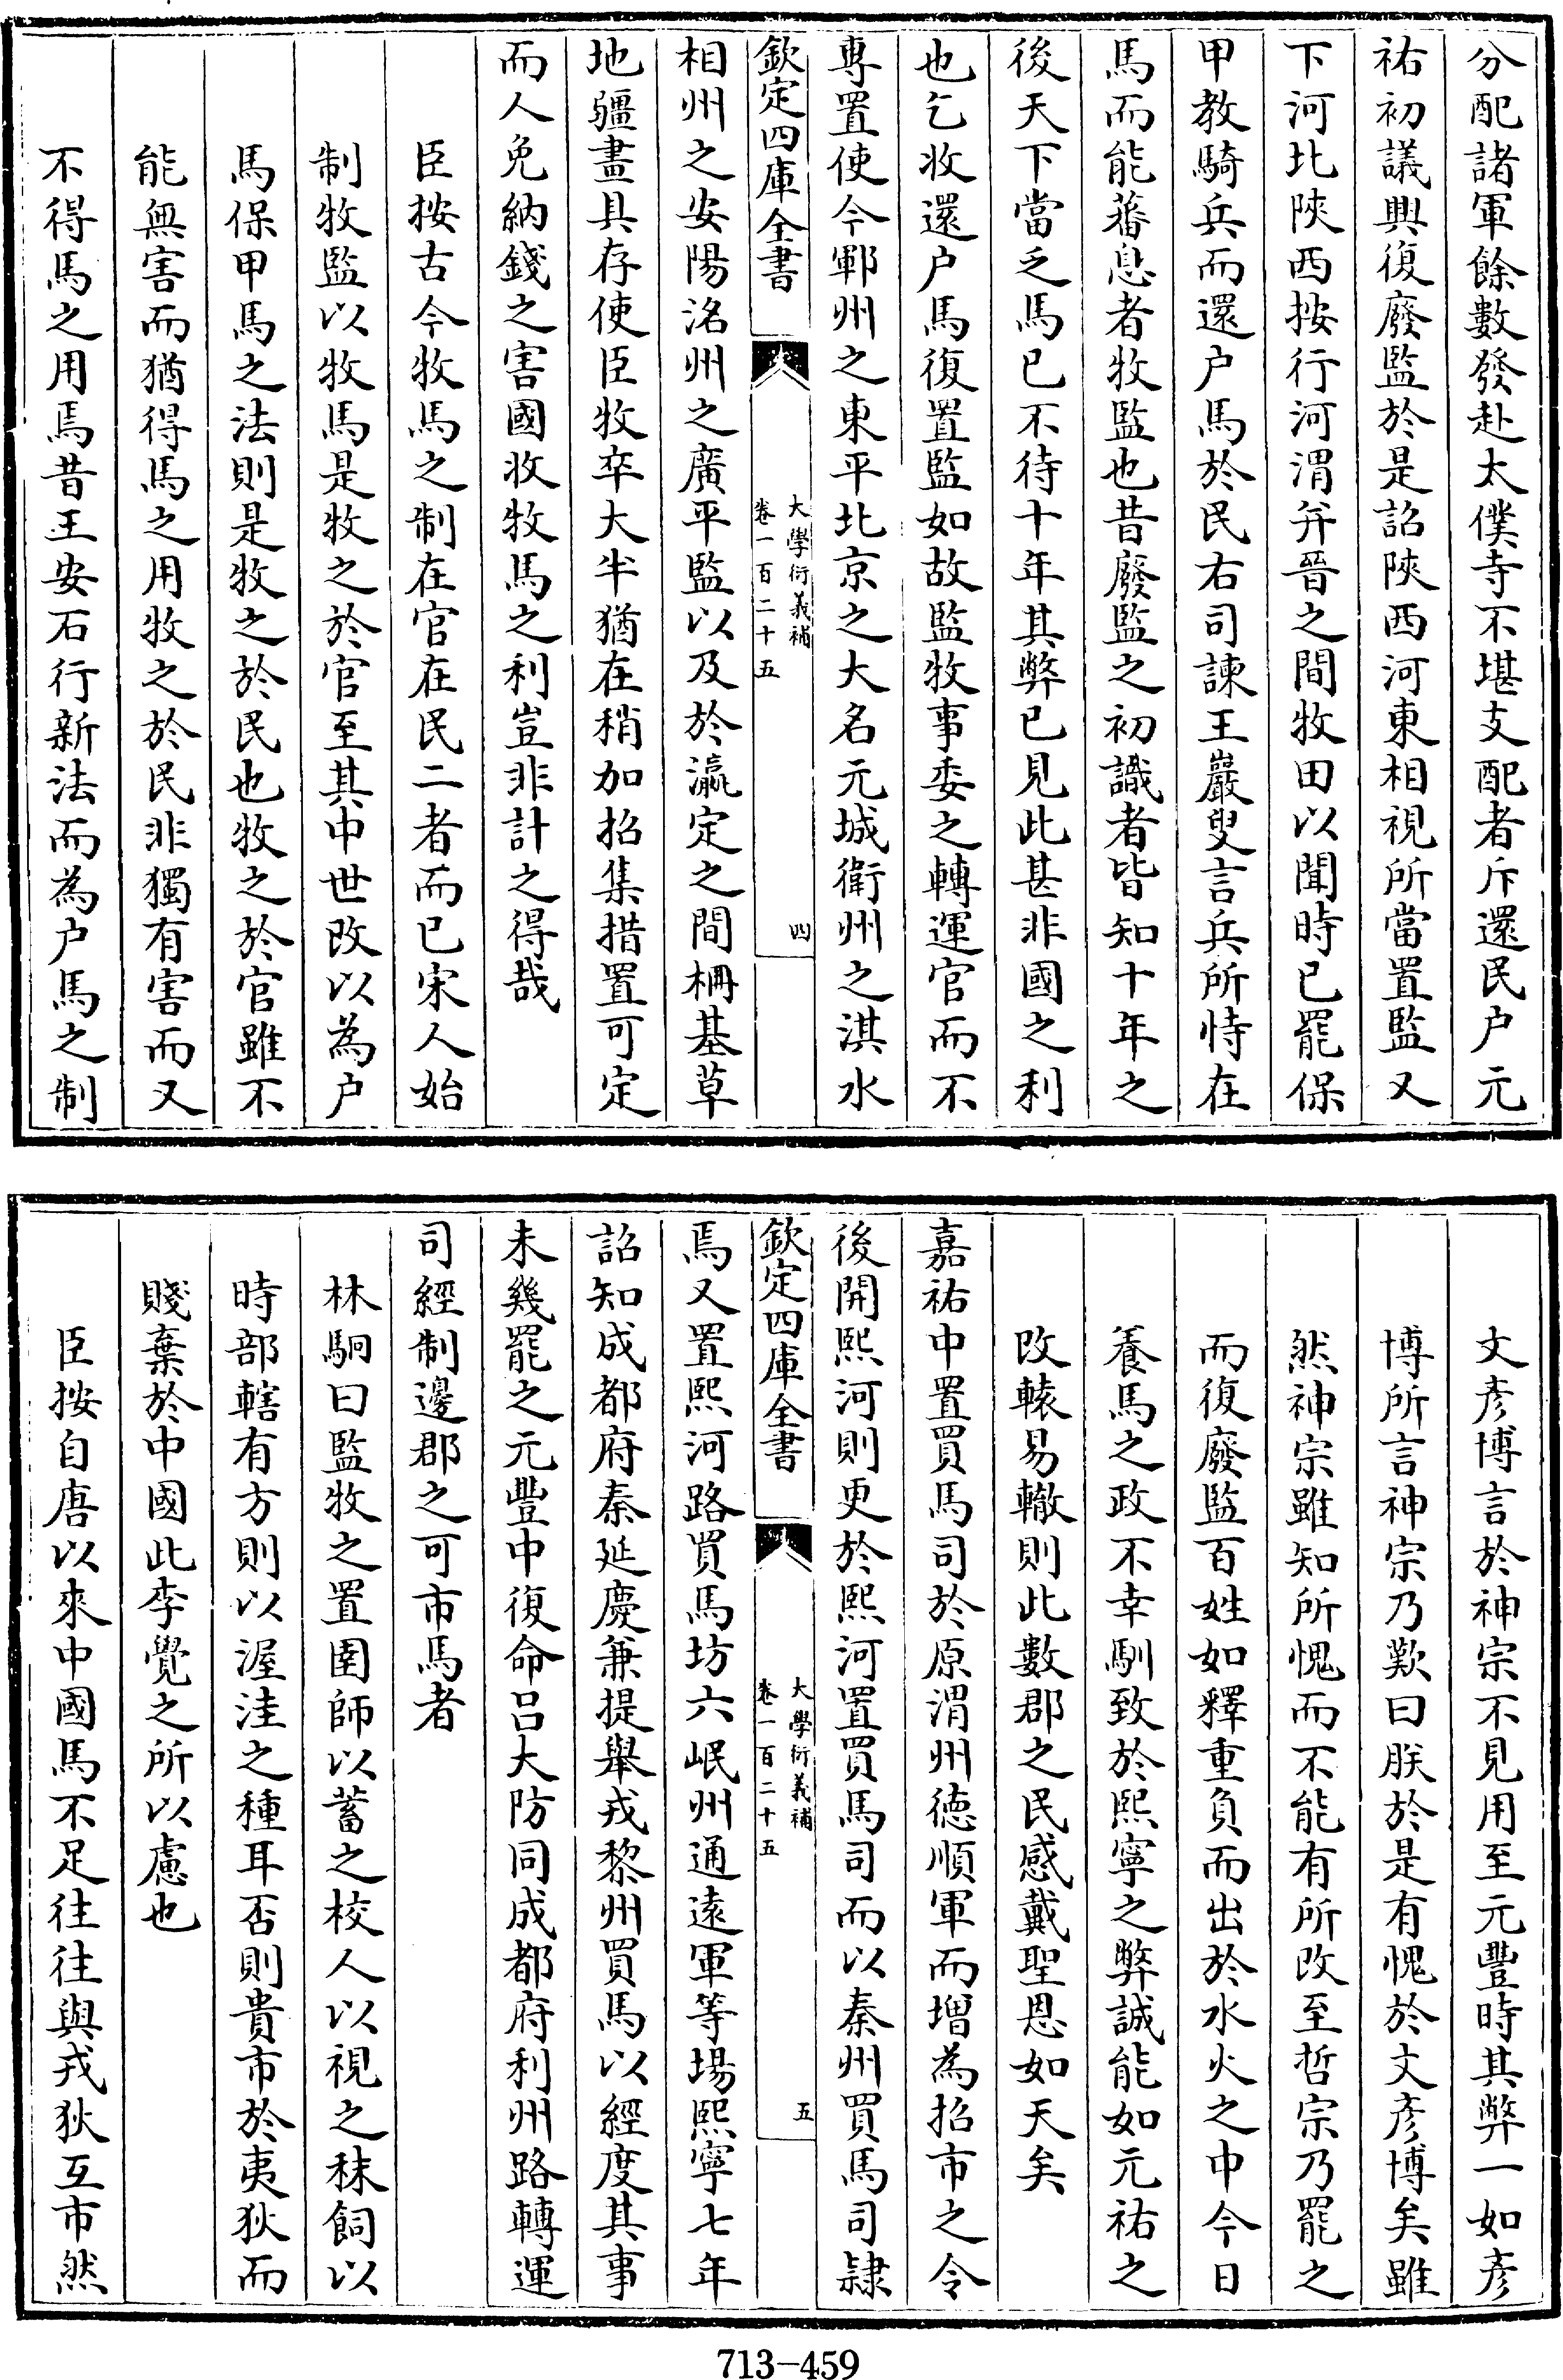 分配諸軍餘數發赴太僕寺不堪支配者斥還民户元
祐初議興復廢監於是詔陜西河東相視所當置監又
下河北陜西按行河渭并晉之間牧田以聞時已罷保
甲教騎兵而還户馬於民右司諫王巖叟言兵所恃在
馬而能蕃息者牧監也昔廢監之初識者皆知十年之
後天下當乏馬已不待十年其弊已見此甚非國之利
也乞收還户馬復置監如故監牧事委之轉運官而不
專置使今鄆州之東平北京之大名元城衛州之淇水
欽定四庫全書
大學衍義補
卷一百二十五
四
相州之安陽洺州之廣平監以及於瀛定之間柵基草
地疆畫具存使臣牧卒大半猶在稍加招集措置可定
而人免納錢之害國收牧馬之利豈非計之得哉
臣按古今牧馬之制在官在民二者而已宋人始
制牧監以牧馬是牧之於官至其中世改以為户
馬保甲馬之法則是牧之於民也牧之於官雖不
能無害而猶得馬之用牧之於民非獨有害而又
不得馬之用焉昔王安石行新法而為户馬之制
文彦博言於神宗不見用至元豐時其弊一如彦
博所言神宗乃歎曰朕於是有愧於文彦博矣雖
然神宗雖知所愧而不能有所改至哲宗乃罷之
而復廢監百姓如釋重負而出於水火之中今日
養馬之政不幸馴致於熙寧之弊誠能如元祐之
改轅易轍則此數郡之民感戴聖恩如天矣
嘉祐中置買馬司於原渭州德順軍而增為招市之令
後開熙河則更於熙河置買馬司而以秦州買馬司隸
欽定四庫全書
大學衍義補
卷一百二十五
五
焉又置熙河路買馬坊六岷州通遠軍等場熙寧七年
詔知成都府秦延慶兼提舉戎黎州買馬以經度其事
未幾罷之元豐中復命吕大防同成都府利州路轉運
司經制邊郡之可市馬者
林駉曰監牧之置圉師以蓄之校人以視之秣飼以
時部轄有方則以渥洼之種耳否則貴市於夷狄而
賤棄於中國此李覺之所以慮也
臣按自唐以來中國馬不足往往與戎狄互市然
713-459